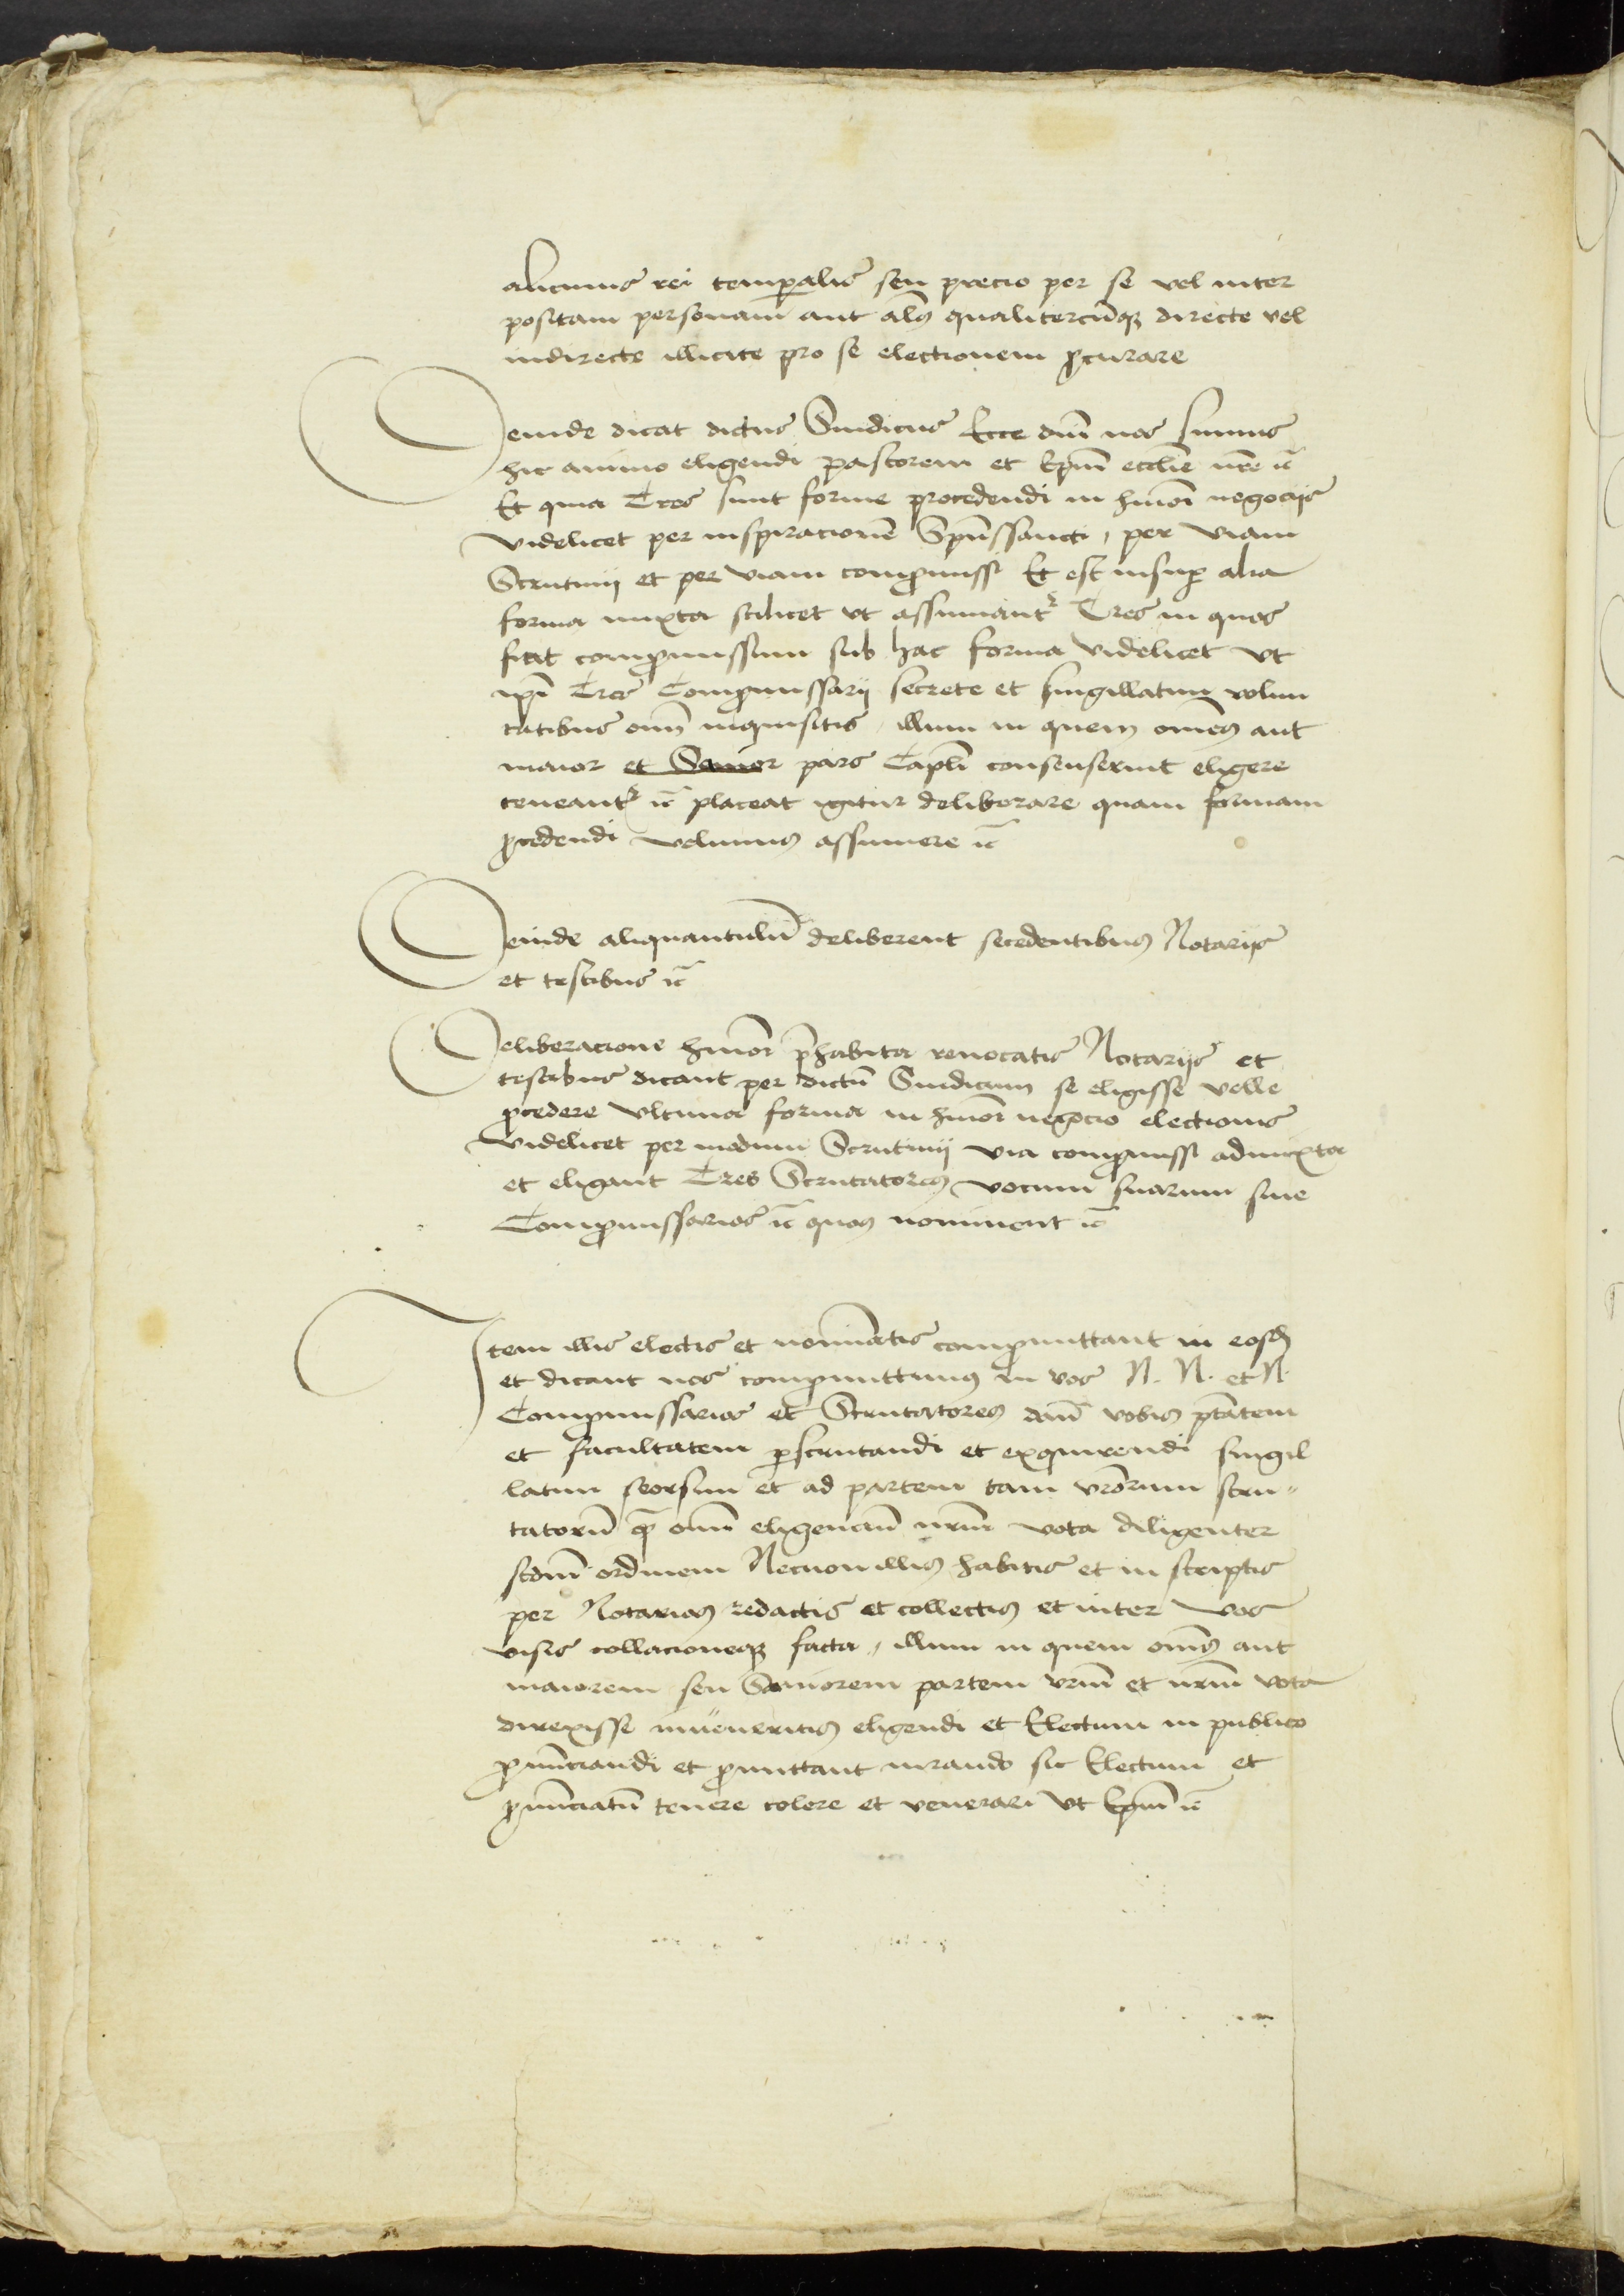 alicuius rei temꝑalis seu precio per se vel inter
positam personam aut als̄ qualitercūqꝫ directe vel
indirecte illicite pro se electionem ꝓcurare
Deinde dicat dictus Sindicus Ecce dn̄i nos sumus
hic animo eligendi pastorem et Ep̄m eccl̄ie nr̄e ⁊c̄
Et quia Tres sunt forme procedendi in hm̄oi negocijs
videlicet per inspiracionē Sp̄ussancti, per viam
Scrutinij et per viam comꝓmissi Et est insuꝑ alia
forma mixta scilicet vt assumantr̄ Tres in quos
fiat comꝓmissum sub hac forma videlicet vt
ip̄i Tres Comꝓmissarij secrete et singillatim volun
tatibus om̄ inquisitis, illum in quem om̄es aut
maior et Sanior pars Capl̄i consenserint eligere
teneantr̄ ⁊c̄ placeat igitur deliberare quam formam
ꝓcedendi velimus assumere ⁊c̄
Deinde aliquantulū deliberent secedentibus Notarijs
et testibus ⁊c̄
Deliberacione hm̄oi p̄habita reuocatis Notarijs et
testibus dicant per dictū Sindicum se eligisse velle
ꝓcedere vltima forma in hm̄oi negocio electionis
videlicet per modum Scrutinij via comꝓmissi admixta
et eligant Tres Scrutatores vocum suarum siue
Comꝓmissarios ⁊c̄ quos nominent ⁊c̄
Item illis electis et nominatis comꝓmittant in eosd̄
et dicant nos comꝓmittimus in vos N. N. et N.
Comꝓmissarios et Scrutatores dam̄ vobis ptātem
et facultatem ꝑscrutandi et exquirendi singil
latim seorsim et ad partem tam vr̄orum scru-
tatorū q̄ om̄ eligenciū nr̄m vota diligenter
scdm̄ ordinem Necnon illis habitis et in scriptis
per Notarios redactis et collectis et inter vos
visis collacioneqꝫ facta, illum in quem om̄es aut
maiorem seu Saniorem partem vr̄m et nr̄m vota
direxisse inueneritis eligendi et Electum in publico
ꝓnūnciandi et ꝓmittant iurando sic Electum et
ꝓnūnciatū tenere colere et venerari vt Ep̄m ⁊c̄